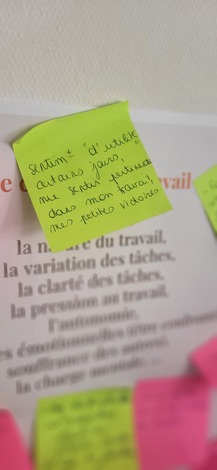 sentim^t "d'utilité"
certains jours,
me sentir pertinente
dans mon travail,
mes petites victoires
vail
la n e du travail,
la variation des tâches,
la clarté des tâches,
la pression au travail,
l'autonomie,
émotionnelles
souffrance des autres),
la charge mentale...